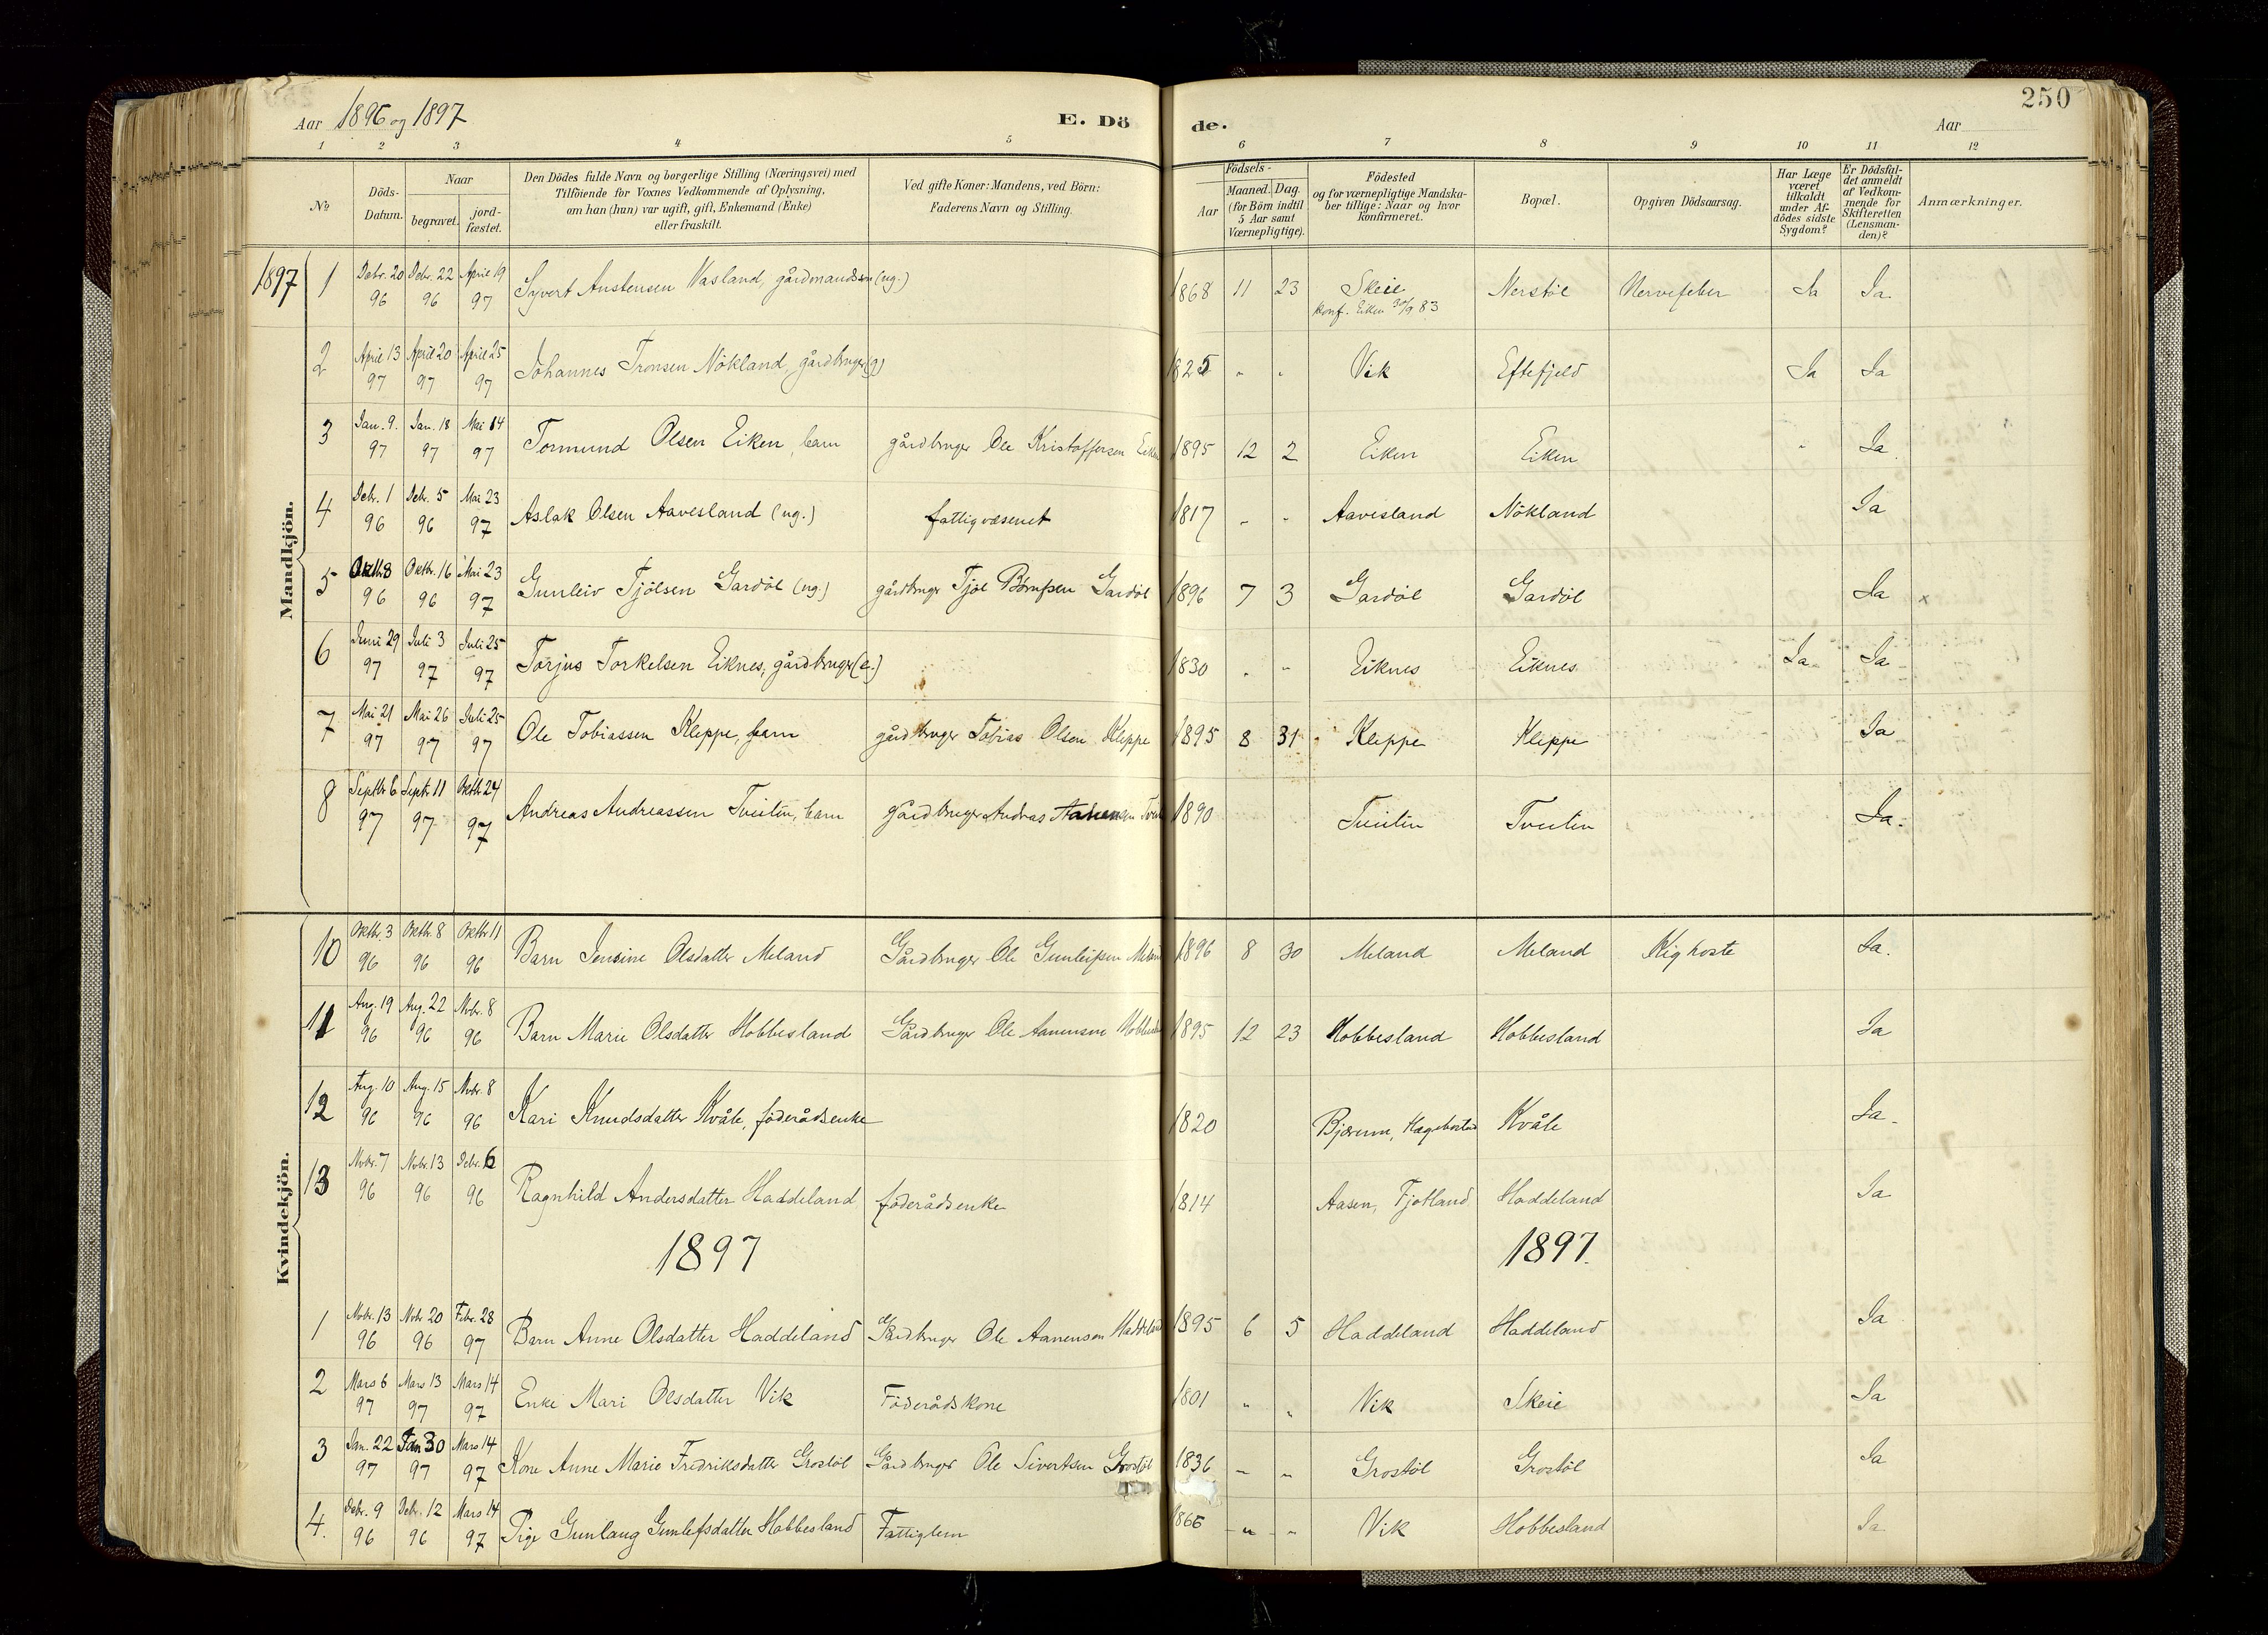 Aar 1896 og 1897 E. Dö de. 250 Aar
1 2 3 4 5 6 7 8 9 10 11 12
№ Döds-Datum. Naar begravet. jord-fæstet. Den Dödes fulde Navn og borgerlige Stilling (Næringsvei) med Tilföiende for Voxnes Vedkommende af Oplysning, om han (hun) var ugift, gift, Enkemand (Enke) eller fraskilt. Ved gifte Koner: Mandens, ved Börn: Faderens Navn og Stilling. Födsels- Aar Maaned. Dag. (for Börn indtil 5 Aar samt Værnepligtige). Födested og for værnepligtige Mandskaber tillige: Naar og hvor konfirmeret. Bopæl. Opgiven Dödsaarsag. Har Læge været tilkaldt under Afdödes sidste Sygdom? Er Dödsfaldet anmeldt af Vedkommende for Skifteretten (Lensmanden)? Anmærkninger.
Mandkjön.
1897 1 Debr. 20 96 Debr. 22 96 April 19 97 Syvert Austensen Vasland, gårdmandssøn (ug.) 1868 11 23 Skeie konf. Eiken 30/9 83 Nerstøl Nervefeber Ja Ja
2 April 13 97 April 20 97 April 25 97 Johannes Tronsen Nökland, gårdbruger (g) 1825 " " Vik Eftefjeld Ja Ja
3 Jan. 9. 97 Jan. 18 97 Mai 14 97 Tormund Olsen Eiken, barn gårdbruger Ole Kristoffersen Eiken 1895 12 2 Eiken Eiken " Ja
4 Debr. 1 96 Debr. 5 96 Mai 23 97 Aslak Olsen Aavesland (ug.) fattigvæsenet 1817 - - Aavesland Nökland Ja
5 Oktbr 8 96 Oktbr. 16 96 Mai 23 97 Gunleiv Tjölsen Gardöl (ug.) gårdbruger Tjöl Börufsen Gardöl 1896 7 3 Gardöl Gardöl Ja x
6 Juni 29 97 Juli 3 97 Juli 25 97 Torjus Torkelsen Eiknes, gårdbruger (e.) 1830 - - Eiknes Eiknes Ja Ja
7 Mai 21 97 Mai 26 97 Juli 25 97 Ole Tobiassen Kleppe, barn gårdbruger Tobias Olsen Kleppe 1895 8 31 Kleppe Kleppe Ja
8 Septbr 6 97 Septr 11 97 Oktbr 24 97 Andreas Andreassen Tveiten, barn gårdbruger Andreas Aanensen 1890 Tveiten Tveiten Ja.
Kvindekjön.
10 Oktbr. 3 96 Oktbr. 8 96 Oktbr 11 96 Barn Jensine Olsdatter Meland Gårdbruger Ole Gunleifsen Meland 1896 8 30 Meland Meland Kighoste Ja.
11 Aug. 19 96 Aug. 22 96 Nvbr. 8 96 Barn Marie Olsdatter Hobbesland Gårdbruger Ole Aanensen Hobbesland 1895 12 23 Hobbesland Hobbesland Ja
12 Aug. 10 96 Aug. 15 96 Nvbr. 8 96 Kari Knudsdatter Kvåle, föderådsenke 1820 Bjærum, Hægebostad Kvåle Ja.
13 Nvbr. 7 96 Nvbr. 13 96 Debr. 6 96 Ragnhild Andersdatter Haddeland föderådsenke 1814 Aasen, Fjotland Haddeland Ja
1897 1897.
1 Nvbr. 13 96 Nvbr 20 96 Febr. 28 97 Barn Anne Olsdatter Haddeland Gårdbruger Ole Aanensen Haddeland 1895 6 5 Haddeland Haddeland Ja
2 Mars 6 97 Mars 13 97 Mars 14 97 Enke Mari Olsdatter Vik Föderådskone 1801 " " Vik Skeie Ja
3 Jan. 22 97 Jan 30 97 Mars 14 97 Kone Anne Marie Fredriksdatter Grostöl Gårdbruger Ole Sivertsen Grostöl 1836 " " Grostöl Grostöl Ja
4. Debr. 9 96 Debr. 12 96 Mars 14 97 Pige Gunlaug Gunlefsdatter Hobbesland Fattiglem 1866 " " Vik Hobbesland Ja